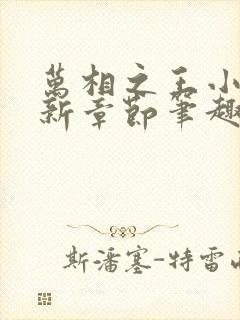 萬相之王小
新章節筆趣
斯潘塞-特雷西